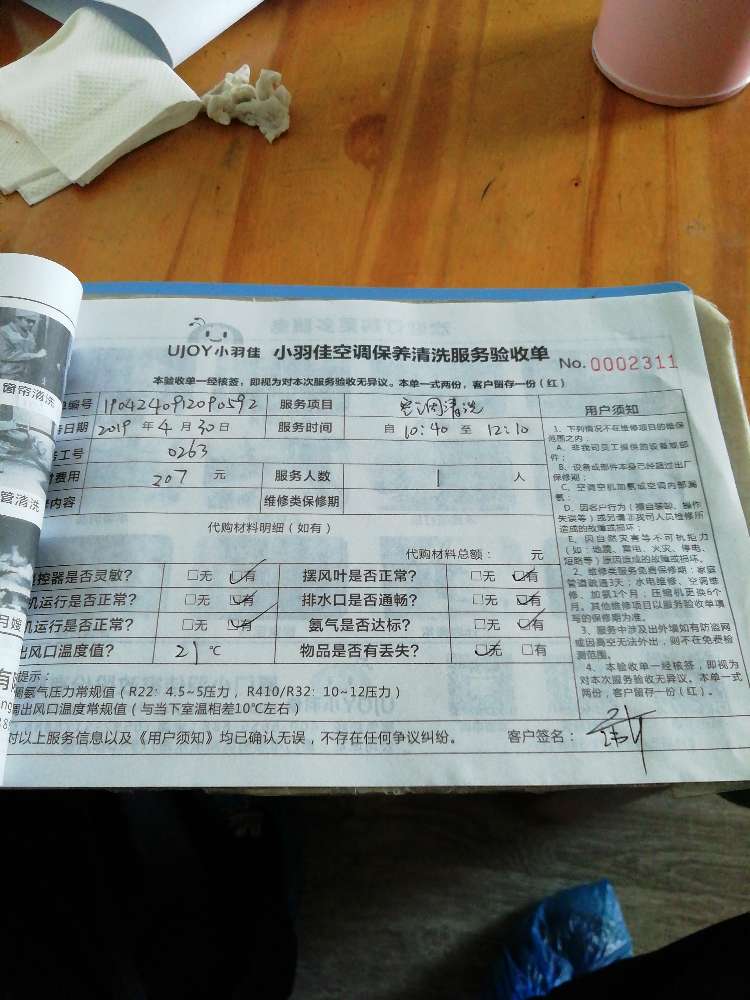 UJOY小羽佳 小羽佳空调保养清洗服务验收单 No. 0002311
本验收单一经核签，即视为对本次服务验收无异议。本单一式两份，客户留存一份（红）
编号 1904240912090592 服务项目 空调清洗 用户须知
日期 2019 年 4 月 30 日 服务时间 自 10:40 至 12:10
工号 0263
费用 207 元 服务人数 1 人
内容 维修类保修期
代购材料明细（如有）
代购材料总额： 元
控器是否灵敏？ □无 □有 摆风叶是否正常？ □无 □有
机运行是否正常？ □无 □有 排水口是否通畅？ □无 □有
机运行是否正常？ □无 □有 氨气是否达标？ □无 □有
出风口温度值？ 21 ℃ 物品是否有丢失？ □无 □有
提示：
氨气压力常规值（R22：4.5~5压力，R410/R32：10~12压力）
出风口温度常规值（与当下室温相差10℃左右）
对以上服务信息以及《用户须知》均已确认无误，不存在任何争议纠纷。 客户签名：
1、下列情况不在维修项目的维保
范围之内：
A、非我司员工提供的设备或部
件；
B、设备或部件本身已经超过出厂
保修期；
C、空调空机加氨或空调内部漏
氨；
D、因客户行为（擅自装卸、操作
失误等）或另请非我司人员检修所
造成的故障或损坏；
E、因自然灾害等不可抗拒力
（如：地震、雷电、火灾、停电、
短路等）原因造成的故障或损坏。
2、维修类服务免费保修期：家庭
管道疏通3天；水电维修、空调维
修、加氨1个月；压缩机更换6个
月。其他维修项目以服务验收单填
写的保修期为准。
3、服务中涉及出外墙如有防盗网
或因高空无法外出，则不在免费检
测范围。
4、本验收单一经核签，即视为
对本次服务验收无异议。本单一式
两份，客户留存一份（红）。
窗帘清洗
管清洗
月嫂